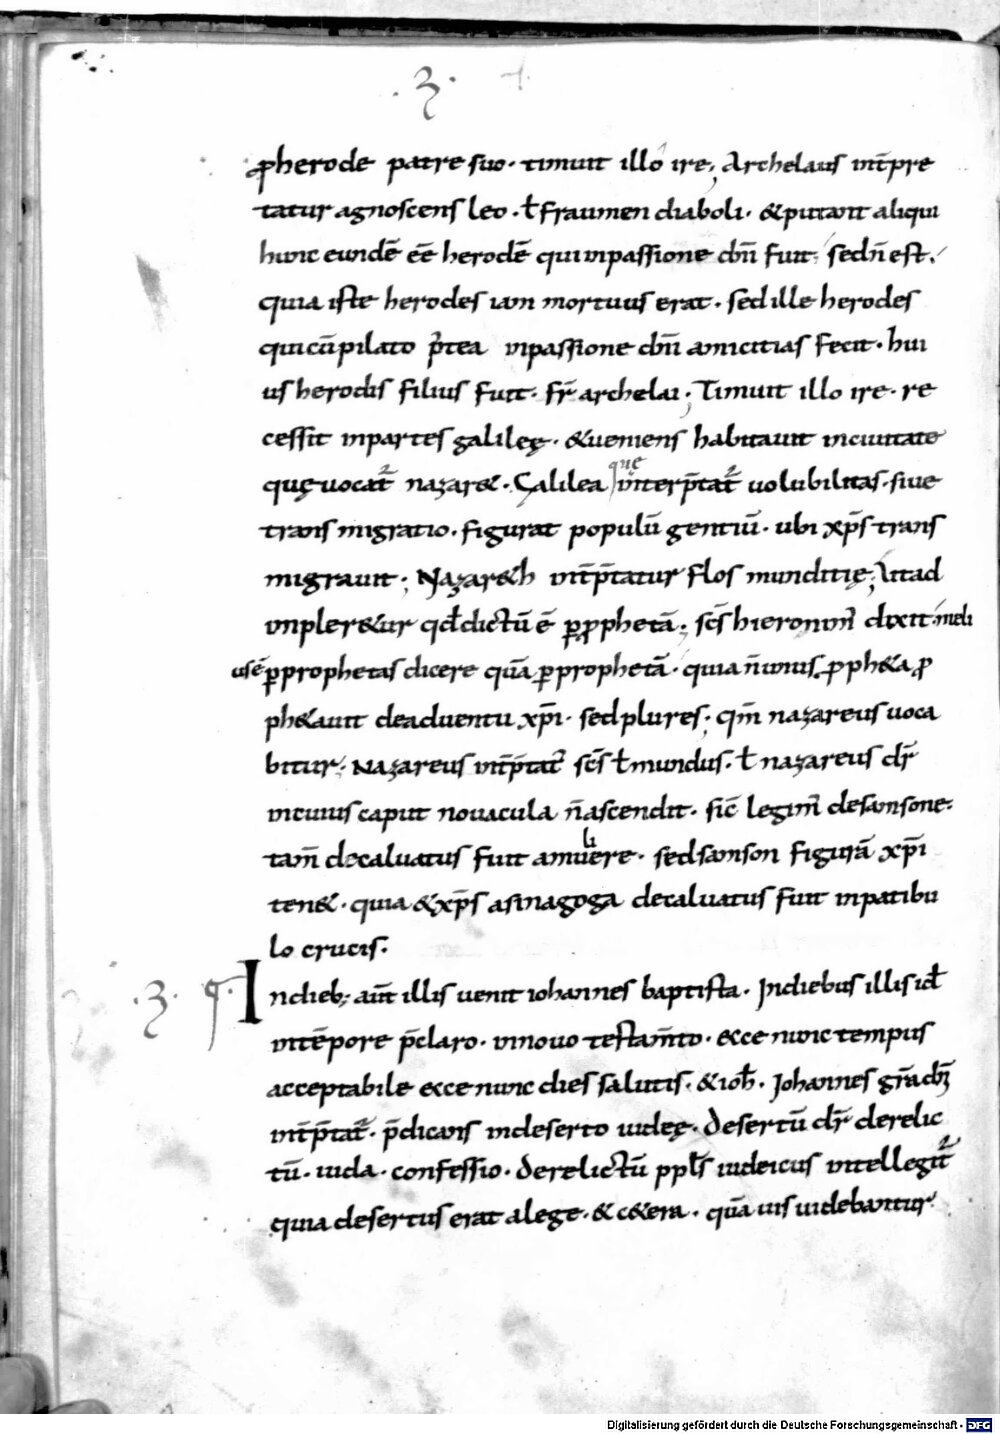 · 3 ·
ꝓherode patre suo· timuit illo ire; Archelaus int̄pre
tatur agnoscens leo· ł fraumen diaboli· &putant aliqui
hunc eundē eē herodē quiinpassione dn̄i fuit; sedn̄ est;
quia iste herodes iam mortuus erat· sedille herodes
quicūpilato p̄tea inpassione dn̄i amicitias fecit· hui
us herodis filius fuit· fr̄ archelai; Timuit illo ire· re
cessit inpartes galileę· &ueniens habitauit inciuitate
quę uocat̄ nazar&· Galilea que int̄erp̄tat̄ uolubilitas· siue
transmigratio· figurat populū gentiū· ubi xp̄s trans
migrauit; Nazar&h int̄p̄tatur flos munditię; Vtad
impler&ur qđdictū ē ꝑꝓphetā; sc̄s hieronim̄ dixit· meli
usē ꝑprophetas dicere quā ꝑprophetā· quia n̄ unus ꝓph&a ꝓ
ph&auit deaduentu xp̄i· sedplures; qm̄ nazareus uoca
bitur; Nazareus int̄p̄tat̄ sc̄s ł mundus· ł nazareus dr̄
incuius caput nouacula n̄ascendit· sic̄ legim̄ desamsone·
tam̄ decaluatus fuit amuliere· sedsamson figurā xp̄i
ten&· quia &xp̄s asinagoga decaluatus fuit inpatibu
lo crucis·
· 3 · Indieb; aut̄ illis uenit iohannes baptista· Indiebus illis iđ
intēpore p̄claro· innouo testam̄to· ecce nunc tempus
acceptabile ecce nunc dies salutis· &ioh̄· Iohannes gr̄a dn̄i
int̄p̄tat̄· p̄dicans indeserto iudeę· Desertū dr̄ derelic
tū· iuda· confessio· Derelictū ppl̄s iudeicus intellegit̄
quia desertus erat alege· &c&era· quā uis uidebantur
Digitalisierung gefördert durch die Deutsche Forschungsgemeinschaft · DFG